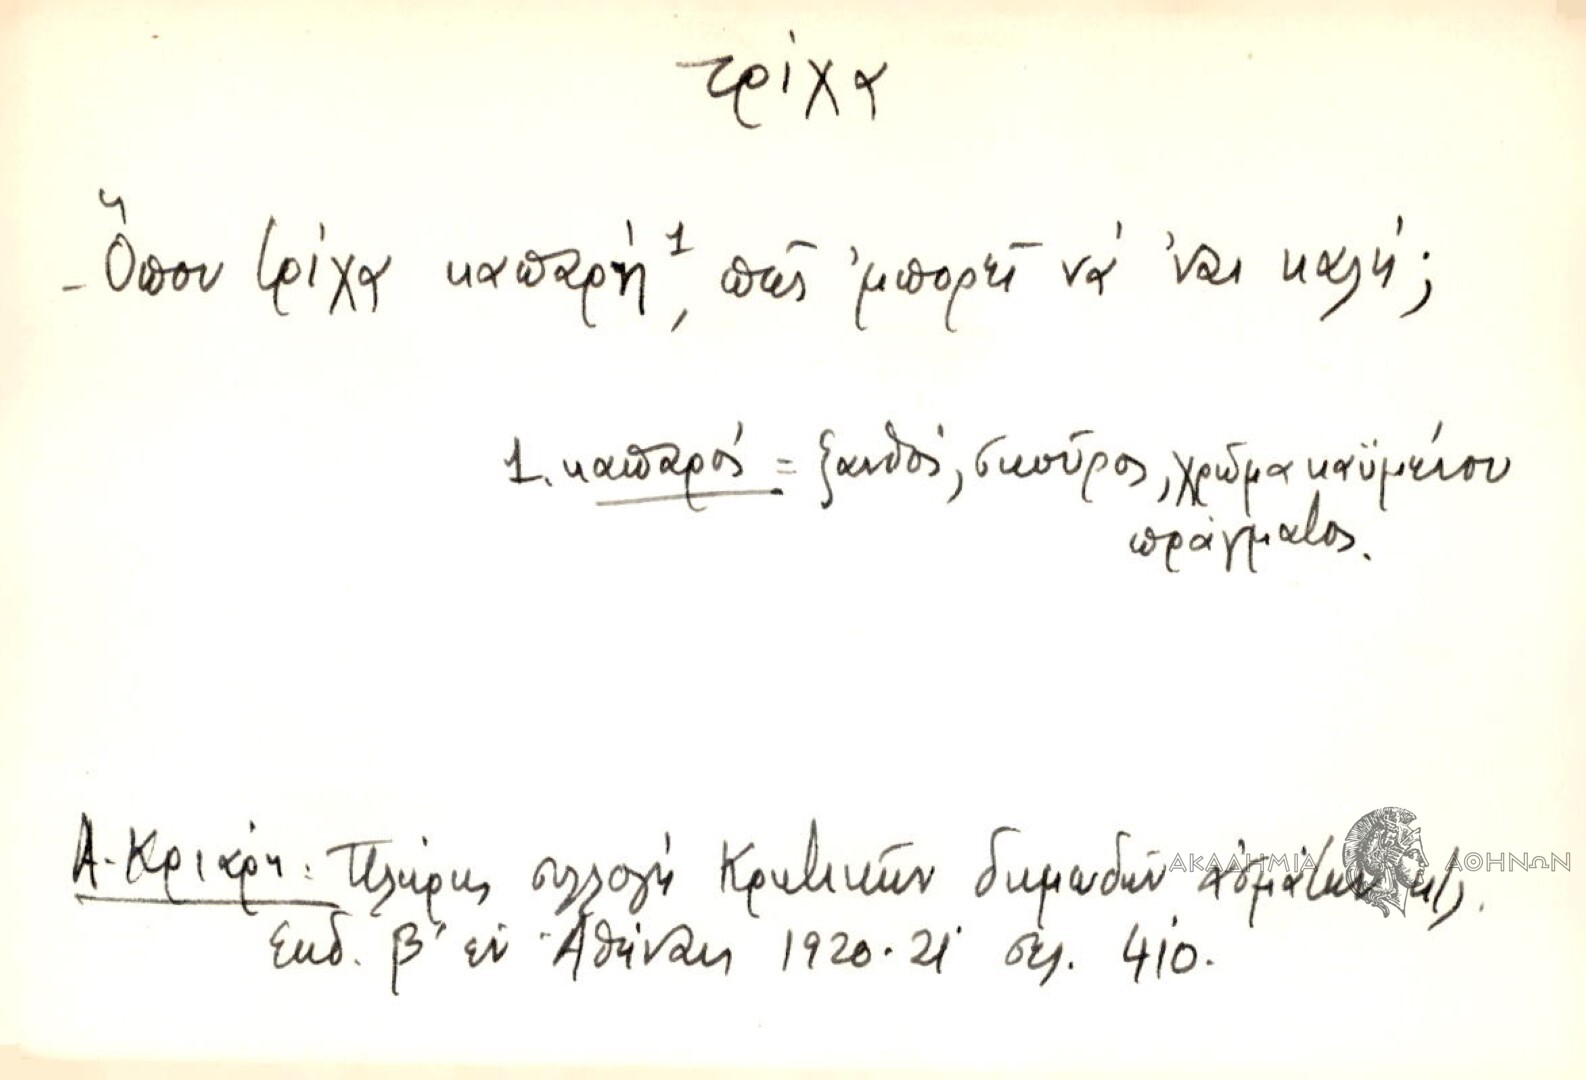 τρίχα
- Ὅπου τρίχα καπαρή 1, πῶς 'μπορεῖ νά 'ναι καλή;
1. καπαρός = ξανθός, σκοῦρος, χρῶμα καϋμένου
πράγματος.
Α. Κριάρη: Πλήρης συλλογή Κρητικῶν δημωδῶν ᾀσμάτων κτλ.
Ἐκδ. β' ἐν Ἀθήναις 1920-21 σελ. 410.
ΑΚΑΔΗΜΙΑ ΑΘΗΝΩΝ